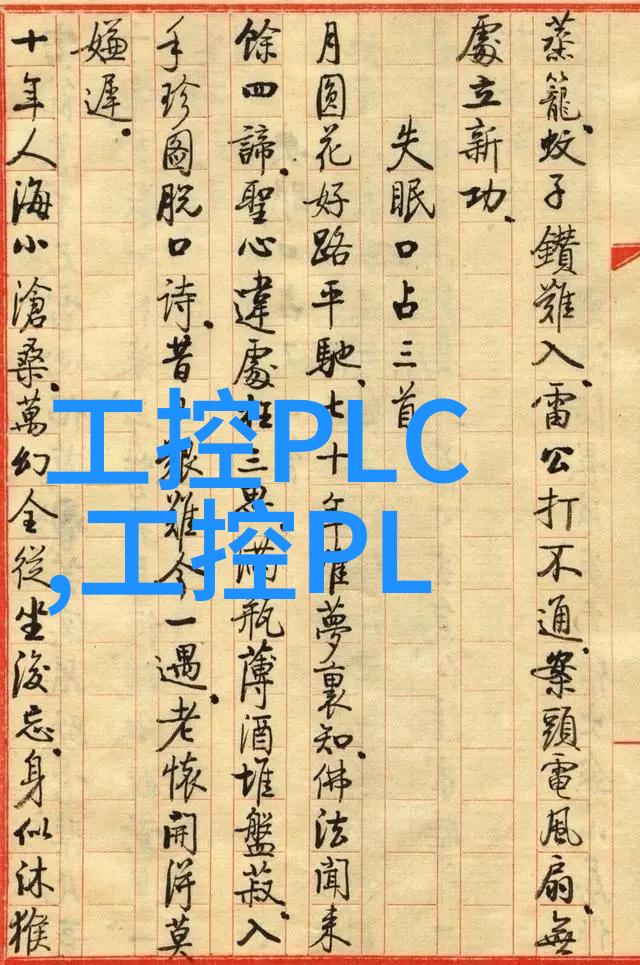 蒸籠、蚊子鑽難入、雷公打不通、案頭電風扇、無
處立新功、
失眠口占三首
月圓花好路平馳、七十年惟夢裏知、佛法聞來
餘四諦、聖心違處三思、滿瓶薄酒堆盤菽、入
手珍圖脫口詩、昔難今一遇、老懷開得莫
嫌遲、
十年人海小滄桑、萬幻全從坐後忘、身似沐猴
工控PLC
,工控PL